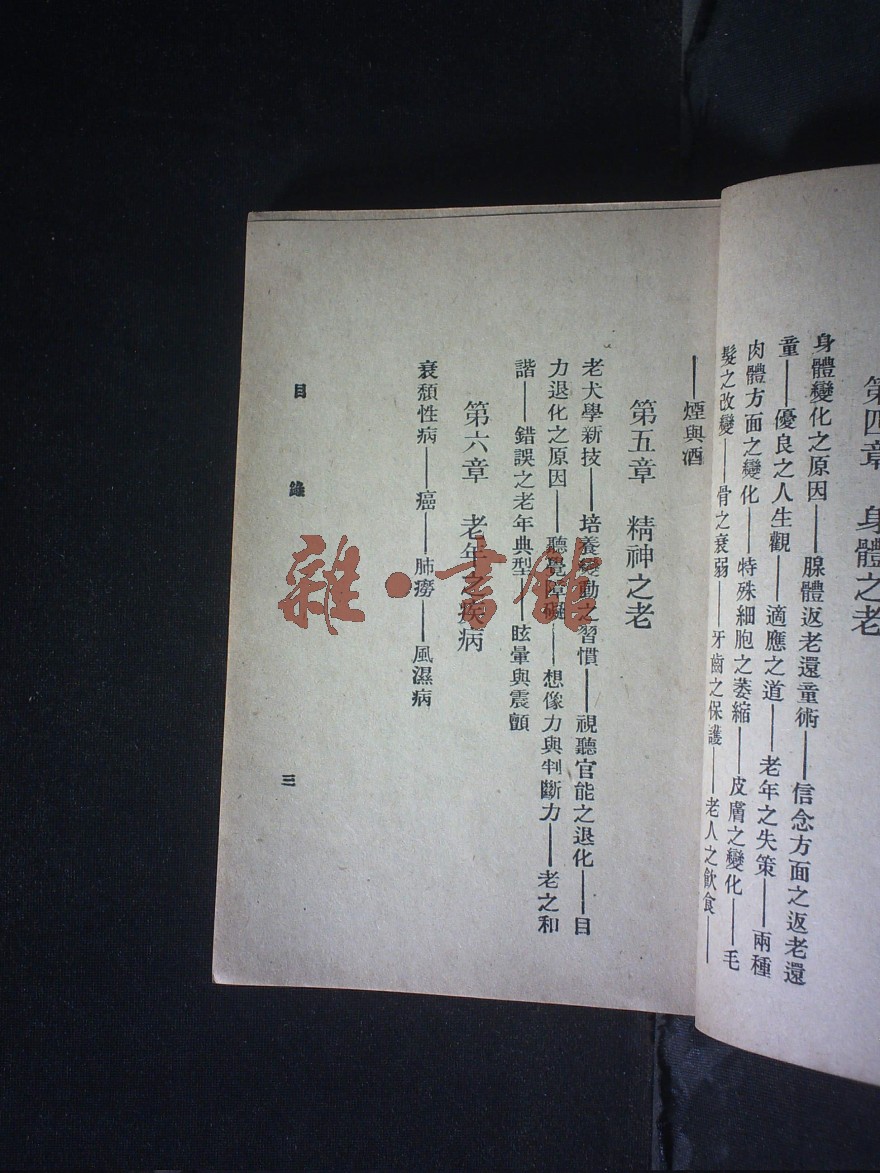 第四章　身體之老
身體變化之原因——腺體返老還童術——信念方面之返老還
童——優良之人生觀——適應之道——老年之失策——兩種
肉體方面之變化——特殊細胞之萎縮——皮膚之變化——毛
髮之改變——骨之衰弱——牙齒之保護——老人之飲食——
——煙與酒
第五章　精神之老
老犬學新技——培養變動之習慣——視聽官能之退化——目
力退化之原因——聽覺障礙——想像力與判斷力——老之和
諧——錯誤之老年典型——眩暈與震顫
第六章　老年之疾病
衰頹性病——癌——肺癆——風濕病
目錄
三
雜·書館